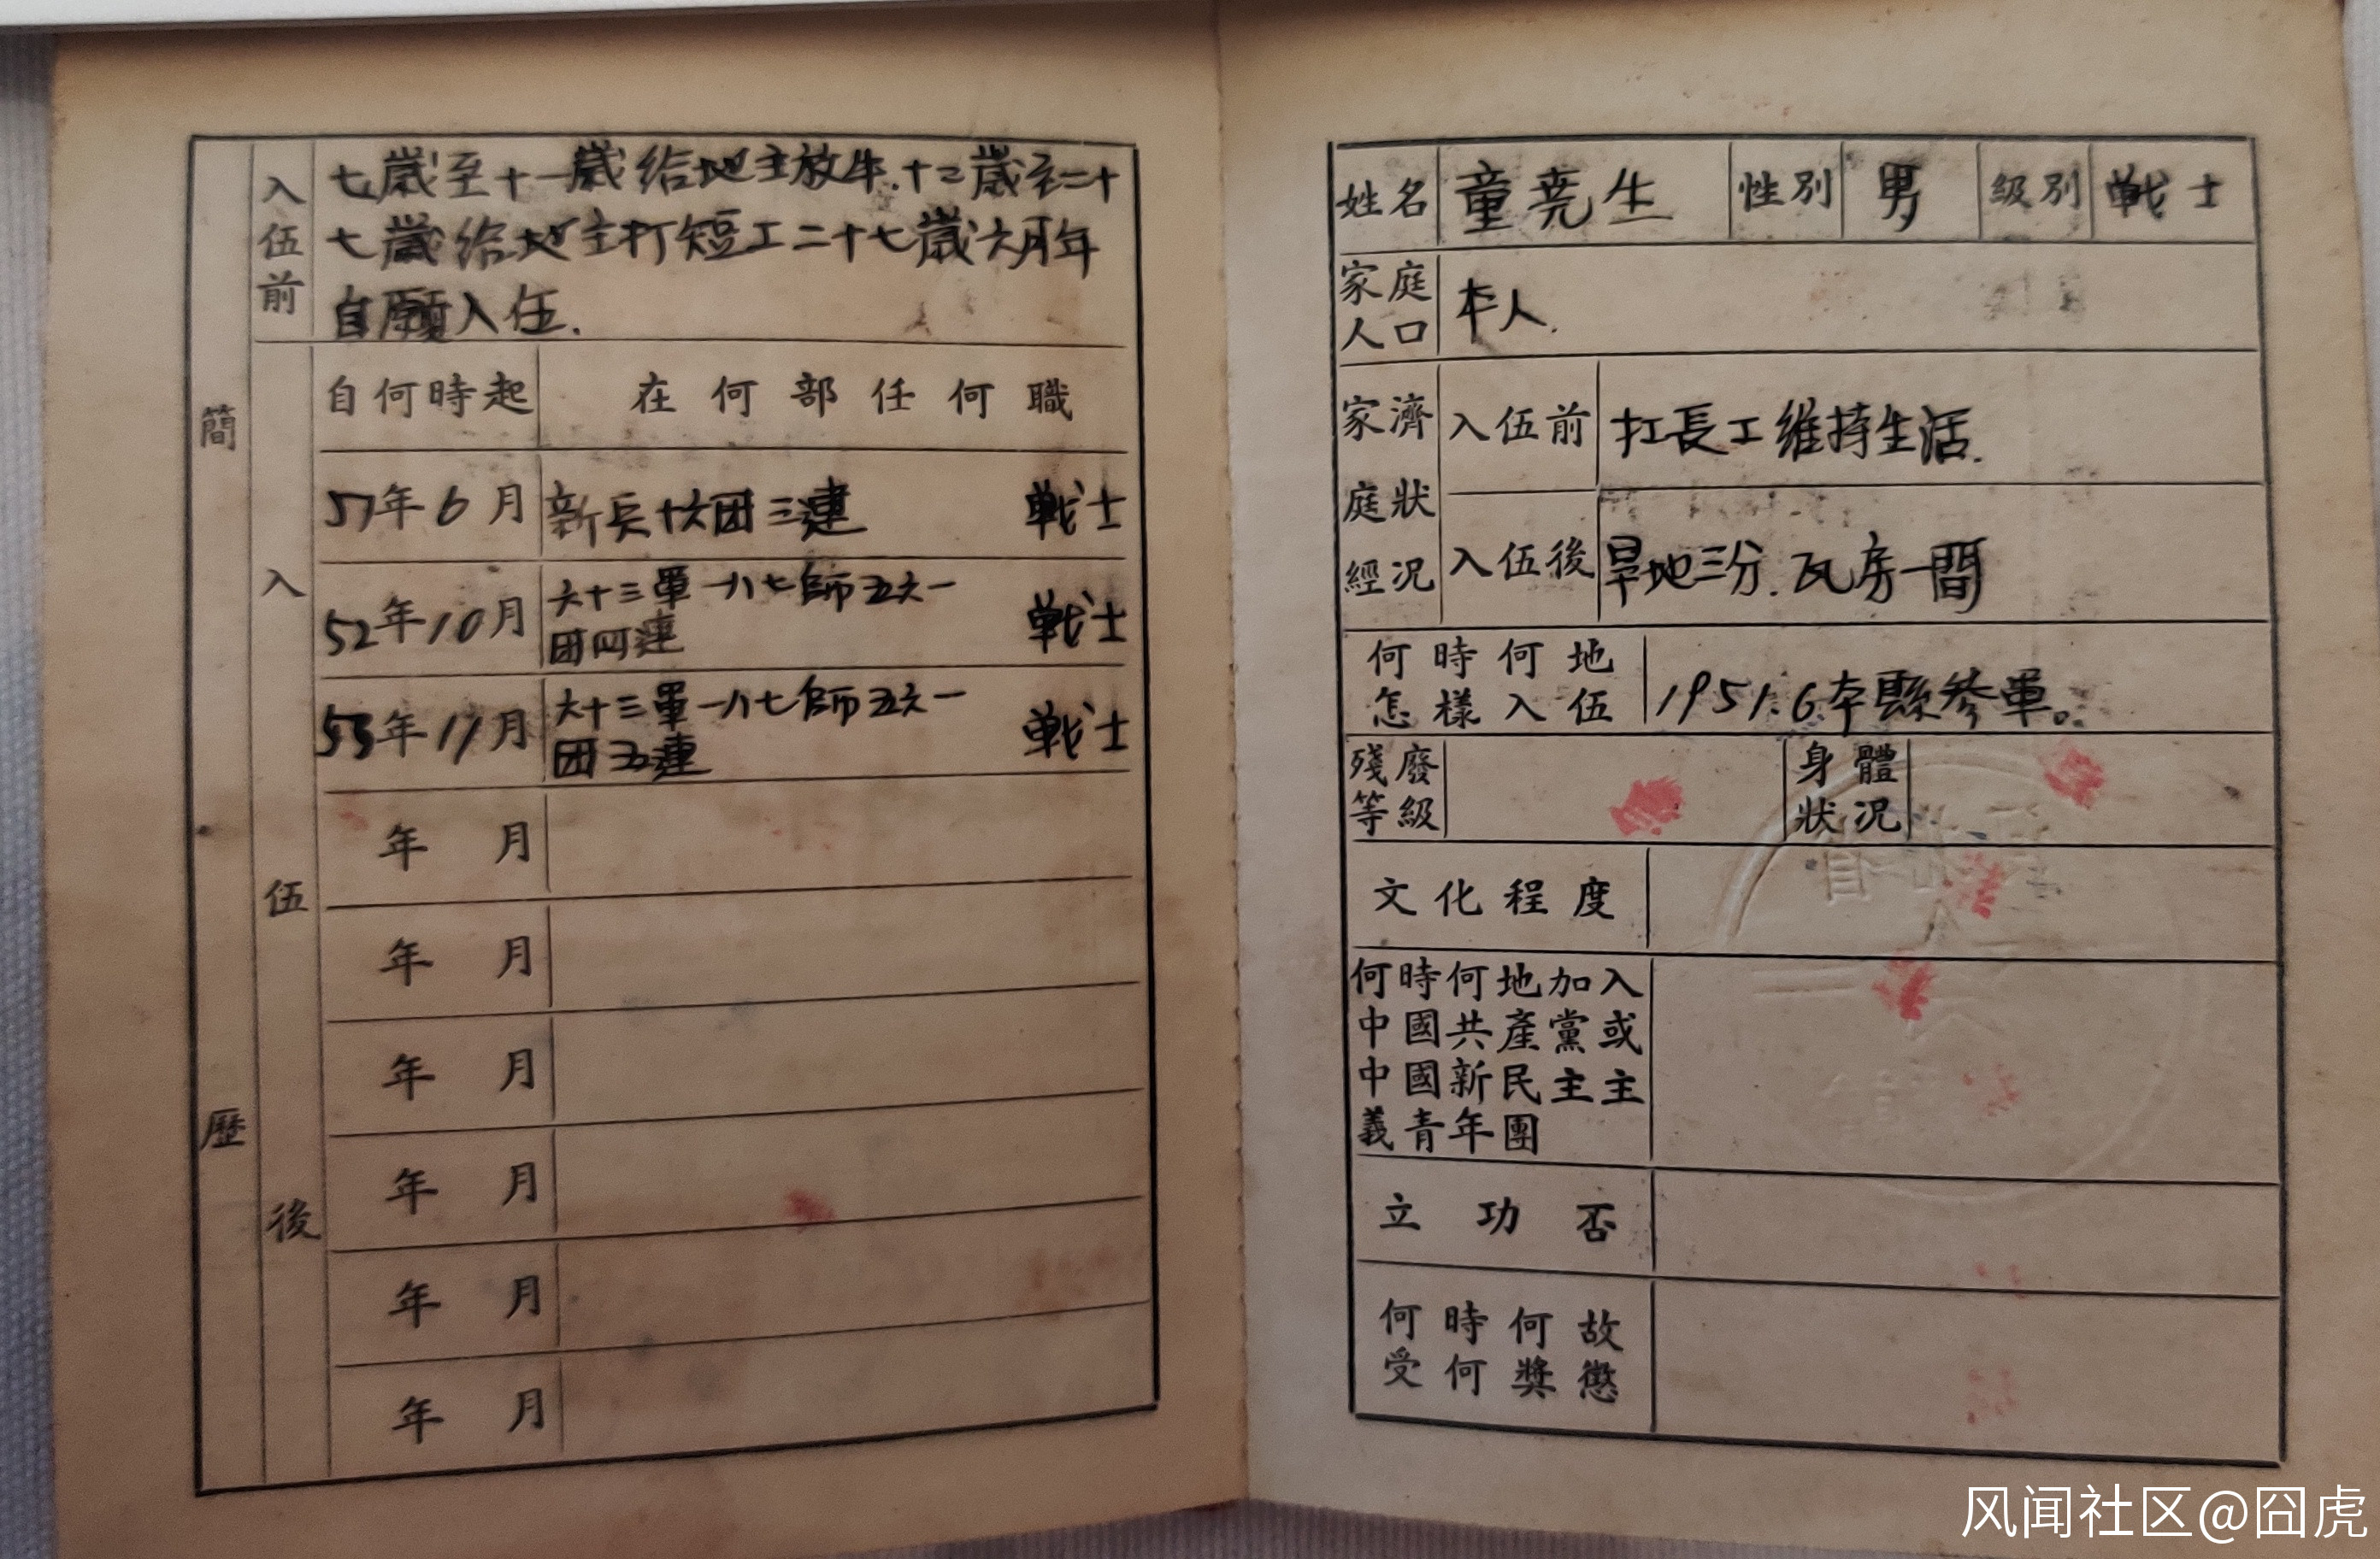 簡歷
入伍前
七歲至十一歲給地主放牛.十二歲至二十
七歲給地主打短工二十七歲六月年
自願入伍.
入伍後
自何時起 在何部任何職
51年6月 新兵十六团三連 戰士
52年10月 六十三軍一八七師五六一
团四連 戰士
53年11月 六十三軍一八七師五六一
团五連 戰士
年 月
年 月
年 月
年 月
年 月
年 月
姓名 童尭生 性別 男 級別 戰士
家庭
人口 本人.
家庭經濟狀況 入伍前 扛長工維持生活.
入伍後 旱地三分.瓦房一間
何時何地
怎樣入伍 1951.6.本縣參軍。
殘廢
等級
身體
狀况
文化程度
何時何地加入
中國共產黨或
中國新民主主
義青年團
立功否
何時何故
受何獎懲
风闻社区@囧虎